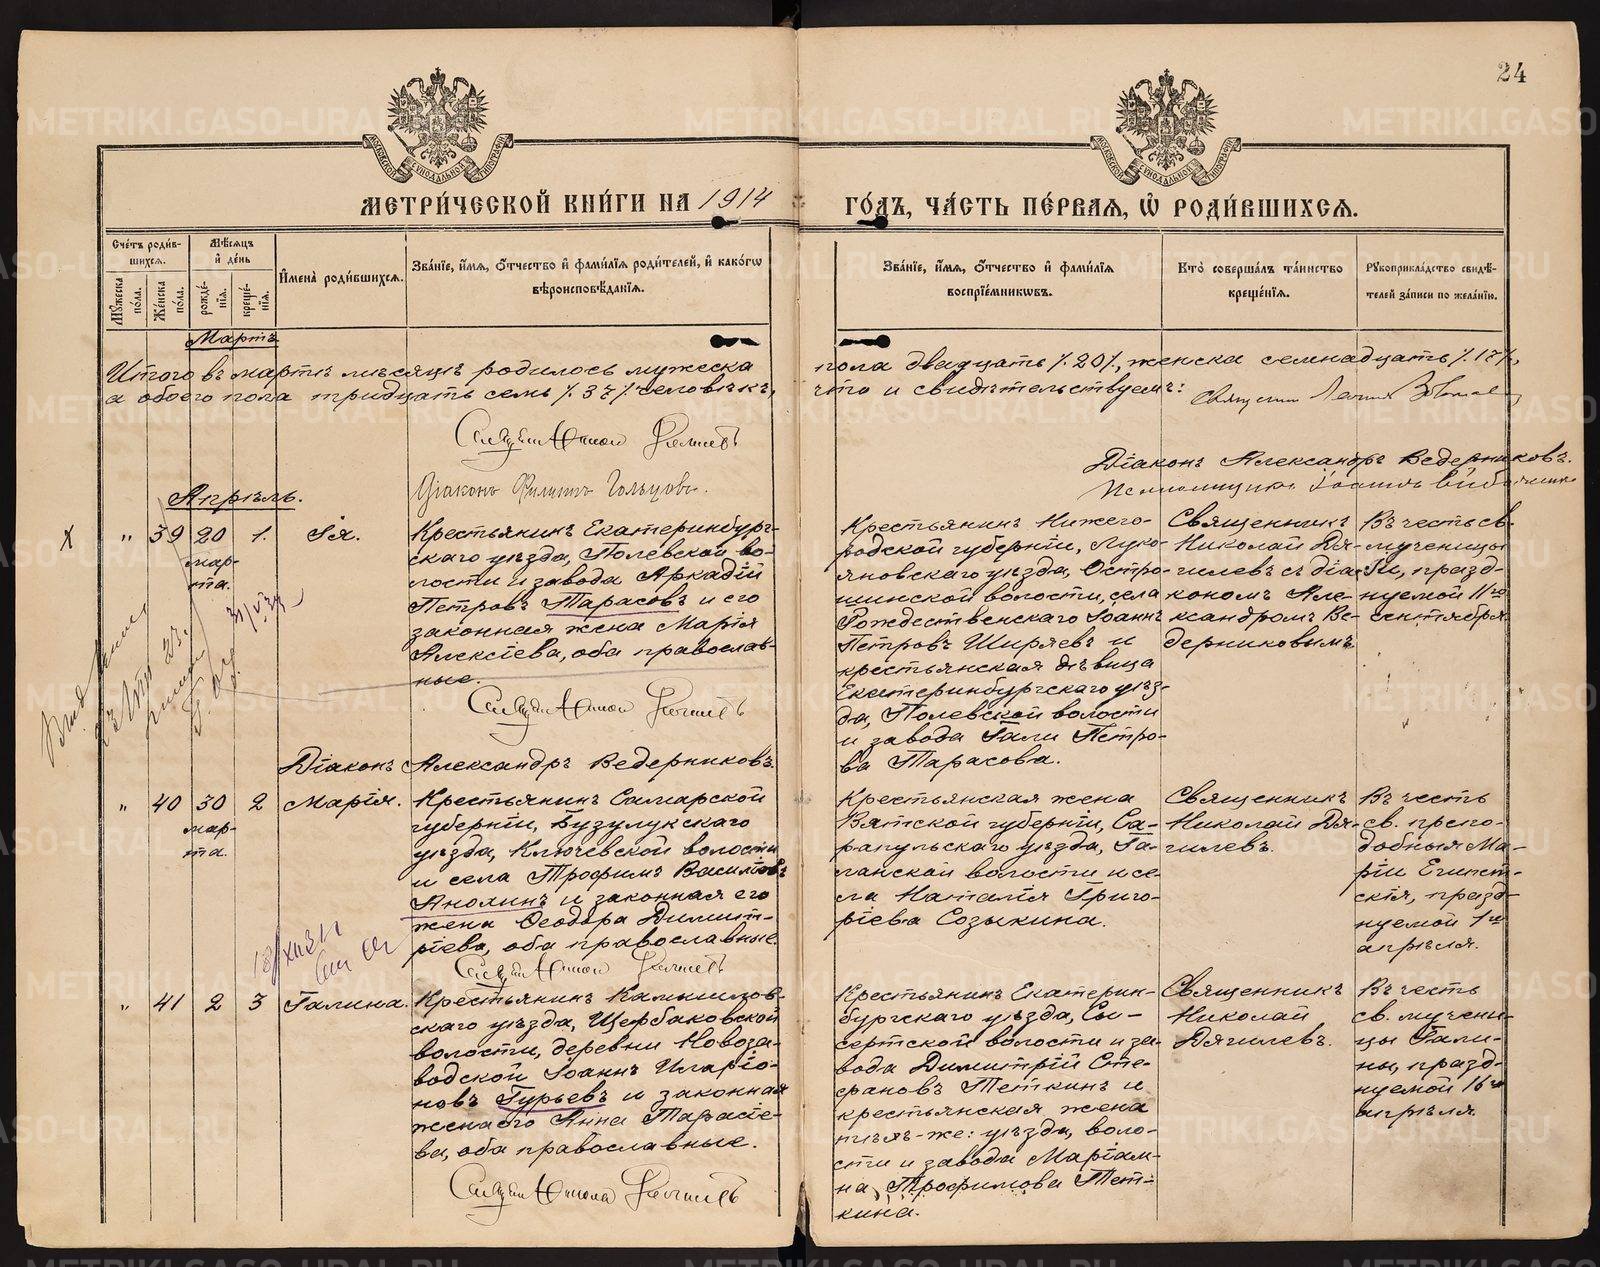 24
МЕТРИ́ЧЕСКОЙ КНИ́ГИ НА 1914 ГО́ДЪ, ЧА́СТЬ ПЕ́РВАѦ, Ѡ҆ РОДИ́ВШИХСѦ.
Сче́тъ роди́вшихсѧ.
Мꙋ́жеска по́ла.
Же́нска по́ла.
Мѣ́сѧцъ и҆ де́нь
рожде́нїѧ.
креще́нїѧ.
И҆мена̀ роди́вшихсѧ.
Зва́нїе, и҆́мѧ, ѻ҆́тчество и҆ фами́лїѧ роди́телей, и҆ како́гѡ
вѣроисповѣ́данїѧ.
Зва́нїе, и҆́мѧ, ѻ҆́тчество и҆ фами́лїѧ
воспрїе́мникѡвъ.
Кто̀ соверша́лъ та́инство
креще́нїѧ.
Рꙋкоприкла́дство свидѣ́-
телей за́писи по жела́нїю.
Мартъ
Итого въ мартѣ мѣсяцѣ родилось мужеска пола двадцать /.20/., женска семнадцать /.17/.,
а обоего пола тридцать семь /.37/. человѣкъ, что и свидѣтельствуемъ:
Діаконъ Филиппъ Гольцовъ.
Діаконъ Александръ Ведерниковъ.
Апрѣль.
" 39 20 марта. 1. Ія.
Крестьянинъ Екатеринбург-
скаго уѣзда, Полевской во-
лости и завода Аркадій
Петровъ Тарасовъ и его
законная жена Марія
Алексіева, оба православ-
ные.
Крестьянинъ Нижего-
родской губерніи, Луко-
яновскаго уѣзда, Остро-
шинской волости, села
Рождественскаго Іоаннъ
Петровъ Ширяевъ и
крестьянская дѣвица
Екатеринбургскаго уѣз-
да, Полевской волости
и завода Галі Петро-
ва Тарасова.
Священникъ
Николай Дя-
гилевъ съ діа-
кономъ Але-
ксандромъ Ве-
дерниковымъ
Въ честь св.
мученицы
Іи, празд-
нуемой 11го
сентября
Діаконъ Александръ Ведерниковъ.
" 40 30 марта. 2 Марія.
Крестьянинъ Самарской
губерніи, Бузулукскаго
уѣзда, Ключевской волости
и села Трофимъ Васильевъ
Анохинъ и законная его
жена Ѳеодора Димит-
ріева, оба православные.
Крестьянская жена
Вятской губерніи, Са-
рапульскаго уѣзда, Га-
ланской волости и се-
ла Наталія Григо-
ріева Созыкина.
Священникъ
Николай Дя-
гилевъ.
Въ честь
св. препо-
добныя Ма-
ріи Египет-
скія, празд-
нуемой 1го
апрѣля.
" 41 2 3 Галина.
Крестьянинъ Камышлов-
скаго уѣзда, Щербаковской
волости, деревни Новоза-
водской Іоаннъ Иларіо-
новъ Гурьевъ и законная
жена его Анна Тарасіе-
ва, оба православные.
Крестьянинъ Екатерин-
бургскаго уѣзда, Сы-
сертской волости и за-
вода Димитрій Сте-
фановъ Теткинъ и
крестьянская жена
тѣхъ-же: уѣзда, воло-
сти и завода Маріам-
на Трофимова Тет-
кина.
Священникъ
Николай
Дягилевъ.
Въ честь
св. мучени-
цы Гали-
ны, празд-
нуемой 16го
апрѣля
METRIKI.GASO-URAL.RU